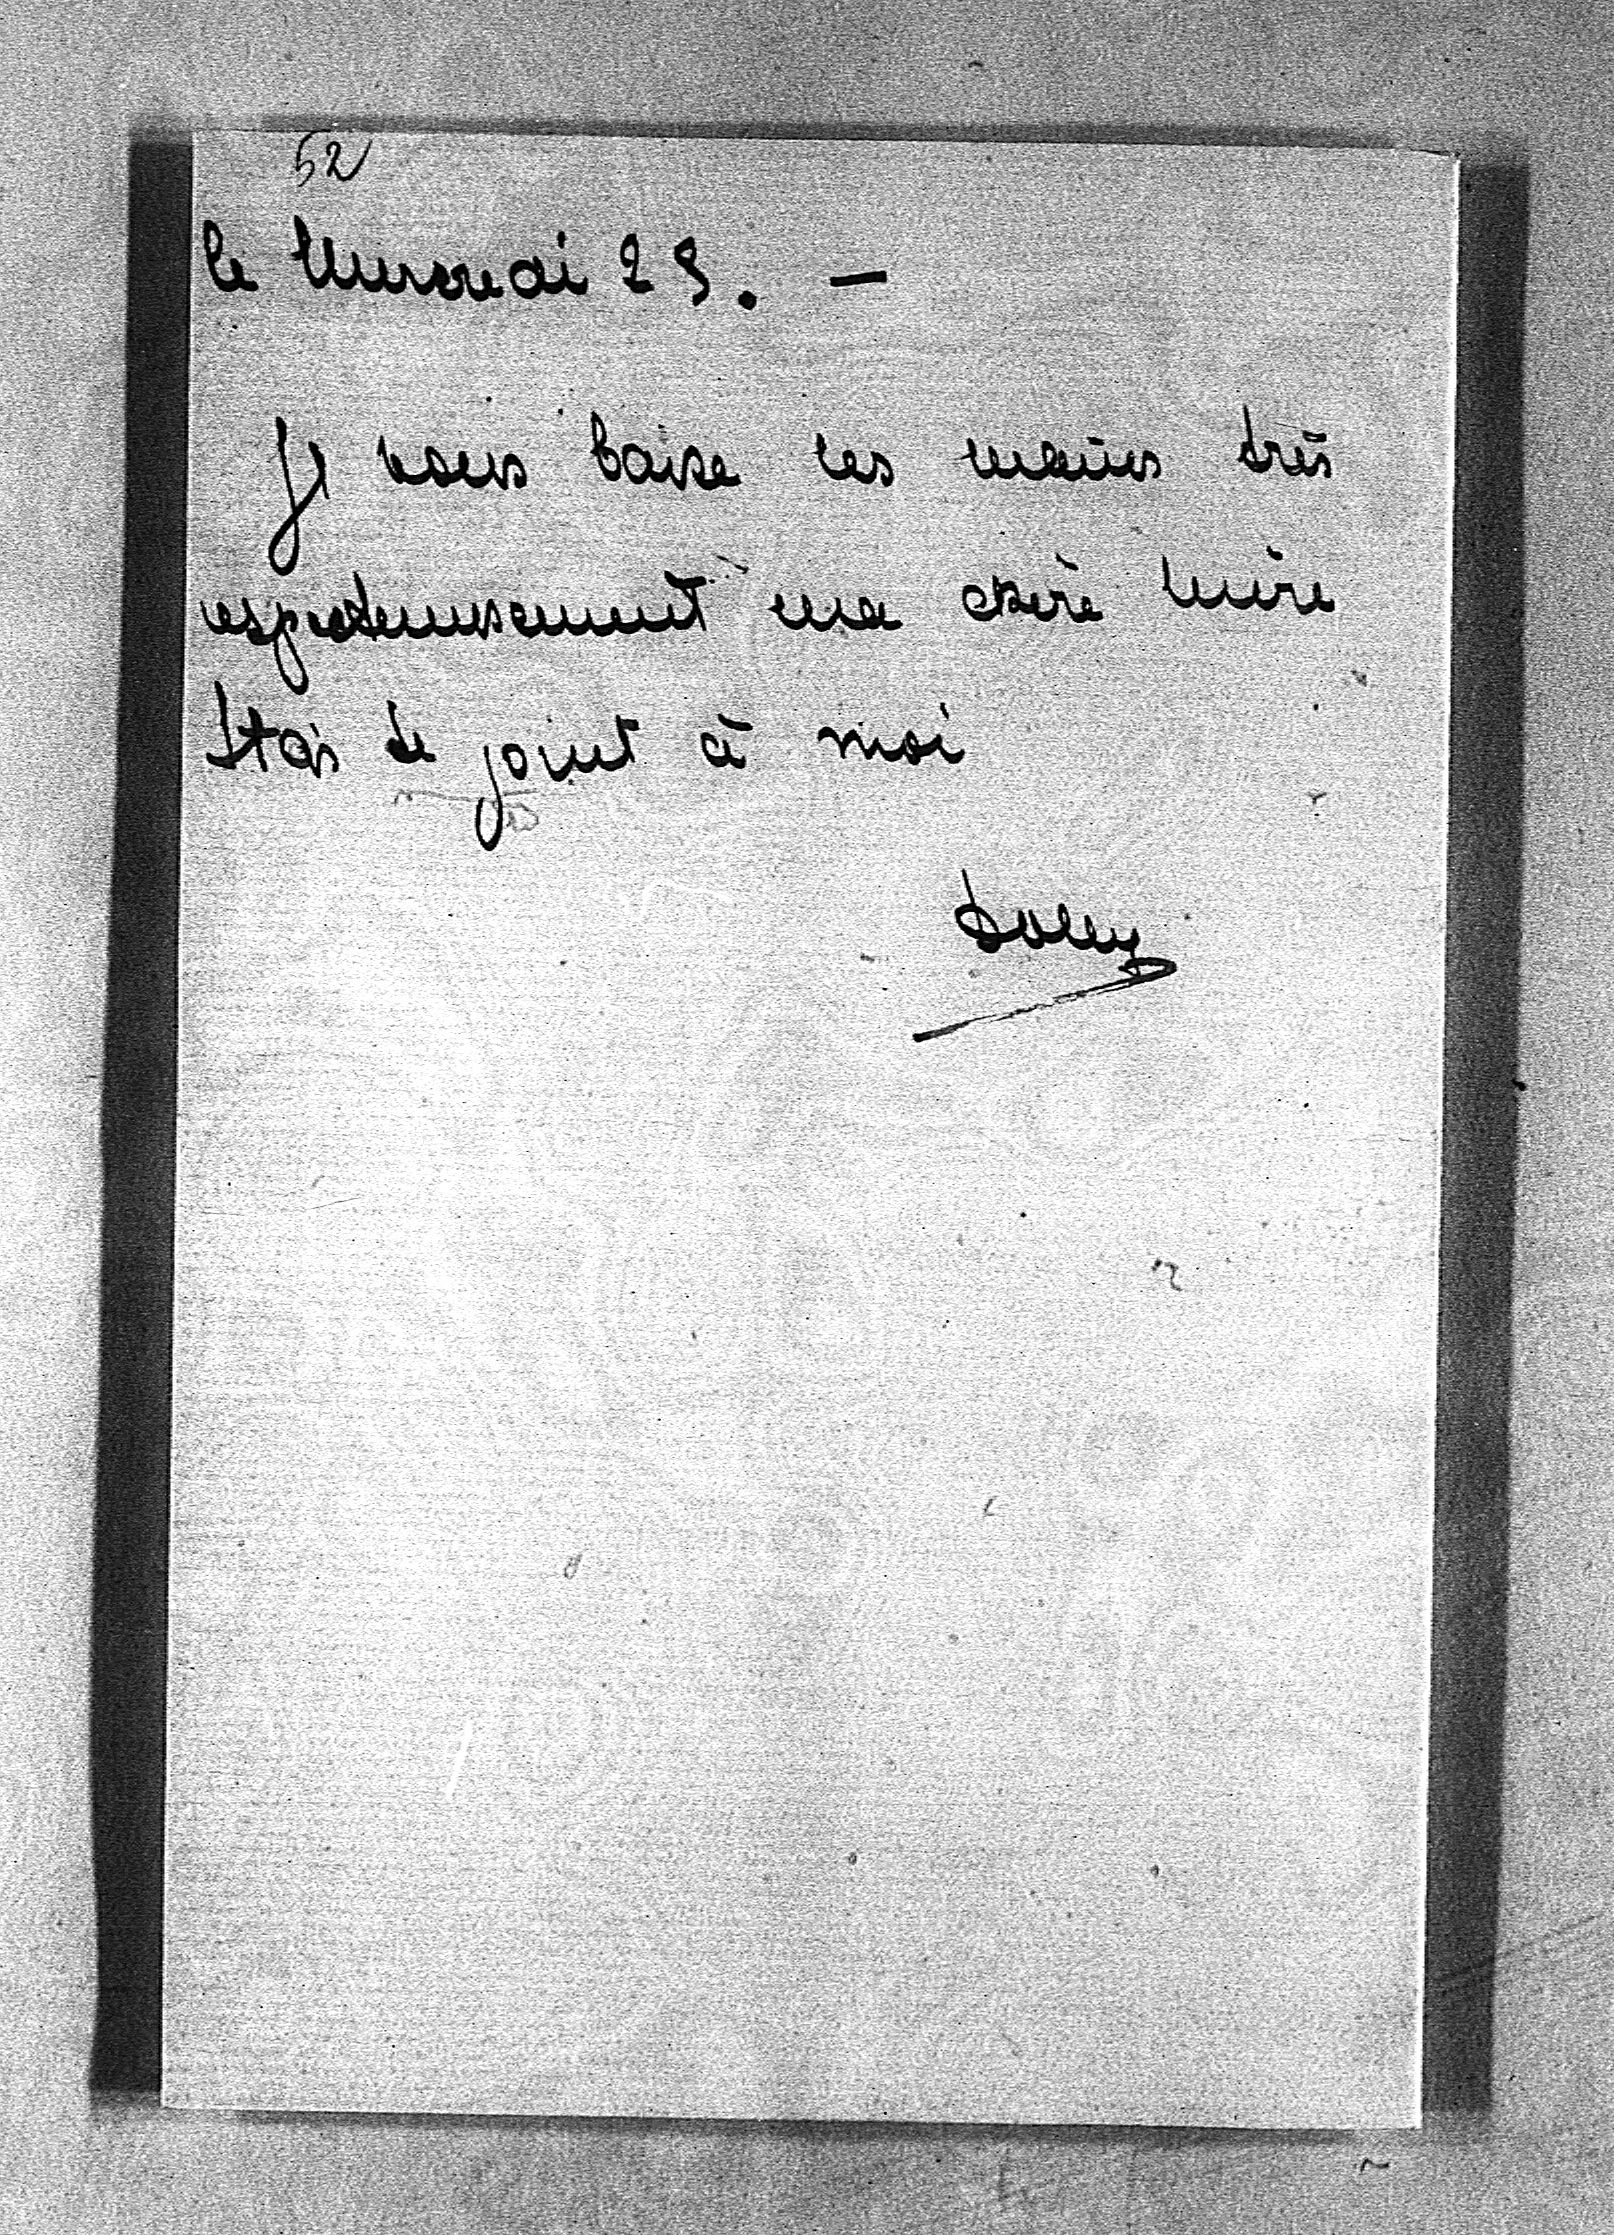 52
le Mercredi 29. —
Je vous baise les mains très
respectueusement ma chère mère
Stas se joint à moi